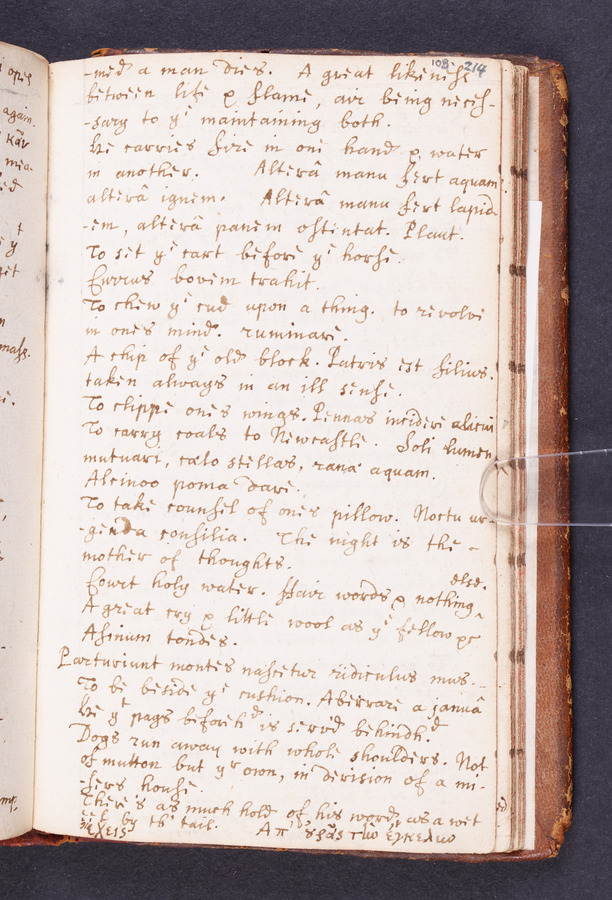 108. 214
-med a man dies. A great likeness
between life & flame, air being neces-
-sary to yͤ maintaining both.
He carries fire in one hand & water
in another. Alterâ manu fert aquam
alterâ ignem. Alterâ manu fert lapid
-em, alterâ panem ostentat. Plaut.
To set yͤ cart before yͤ horse.
Currus bovem trahit.
To chew yͤ cud upon a thing. to revolve
in ones mind. ruminare.
A chip of yͤ old block. Patris est filius.
taken always in an ill sense.
To clippe ones wings. Pennas incidere alicui
To carry coals to Newcastle. Soli lumen
mutuari, cælo stellas, ranæ aquam.
Alcinoo poma dare.
To take counsel of ones pillow. Noctu ur-
-genda consilia. The night is the -
mother of thoughts.
Court holy water. Fair words & nothing
else.
A great cry & little wool as yͤ fellow
Asinum tondes.
Parturiunt montes nascetur ridiculus mus.
To be beside yͤ cushion. Aberrare a januâ
He yͭ pays beforehᵈ is serv'd behindhᵈ.
Dogs run away with whole shoulders. Not
of mutton but yͬ own, in derision of a mi-
-sers house.
There's as much hold of his words as a wet
eel by th' tail. Ἀπ' οὐρᾶς τὴν ἔγχελυν
ἔχεις